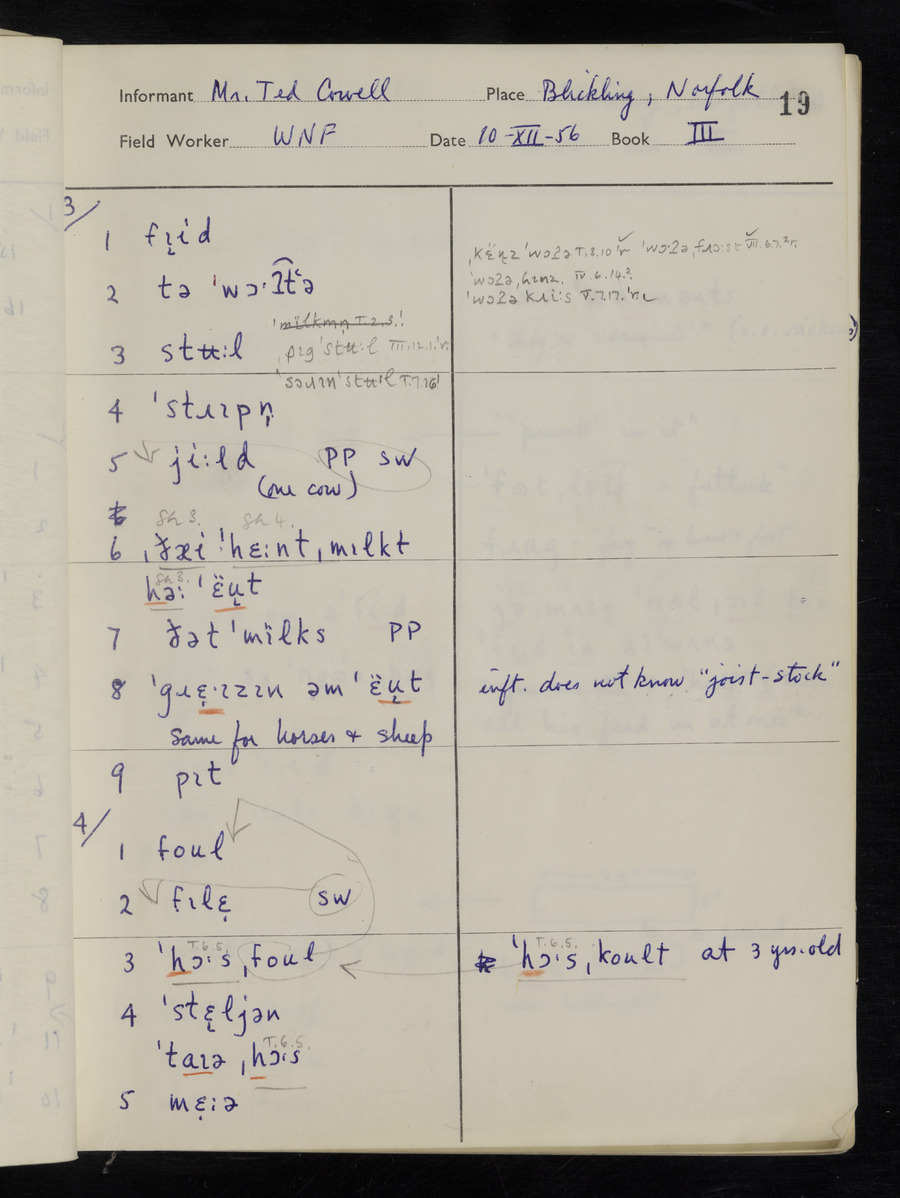 Informant Mr. Ted Cowell Place Blickling, Norfolk 19
Field Worker WNF Date 10-XII-56 Book III
3/
1 fɪ̨id
2 tə ˈwɔ·ʔt͡ʿə
ˈmïlkmn̩ T.2.3.!
3 stʉ:l ˌpɪgˈstʉ:l III.12.1.ˈr.
ˈsəuɪnˈstʉˈl T.7.16!
4 ˈstɹɪpn̩
5 ji:ld PP SW
(one cow)
Sh 3. Sh 4.
6 ˌðæi ˈhɛ:nt ˌmɪlkt
Sh 3.
hə: ˈɛ̈ʉt
7 ðət ˈmïlks PP
8 ˈgɹɛ̨·ɪzɪn əm ˈɛ̈ʉt
same for horses & sheep
9 pɪt
4/
1 foul
2 fɪlɛ̨ SW
T.6.5.
3 ˈhɔ·s ˌfoul
4 ˈstɛ̨ljən
T.6.5.
ˈtaɪə ˌhɔ·s
5 mɛ̨:ə
ˈwɔʔə T.3.10 ˈr. ˈwɔʔə
ˈwɔʔə IV.6.14.²
V.7.17.
inft. does not know "joist-stock"
T.6.5.
ˈhɔ·s ˌkoult at 3 yrs. old